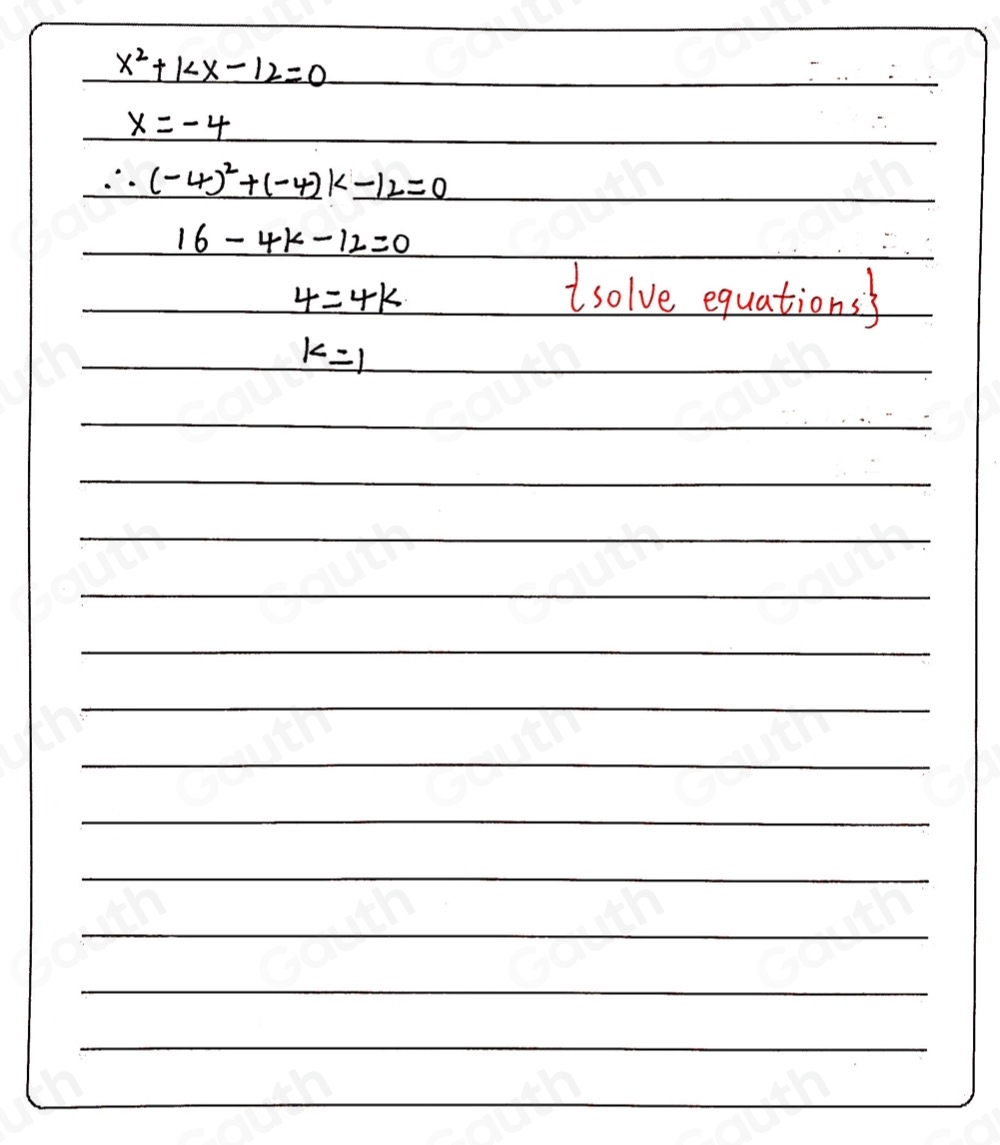 x²+kx-12=0
x=-4
∴(-4)²+(-4)k-12=0
16-4k-12=0
4=4k {solve equations}
k=1
Gauth